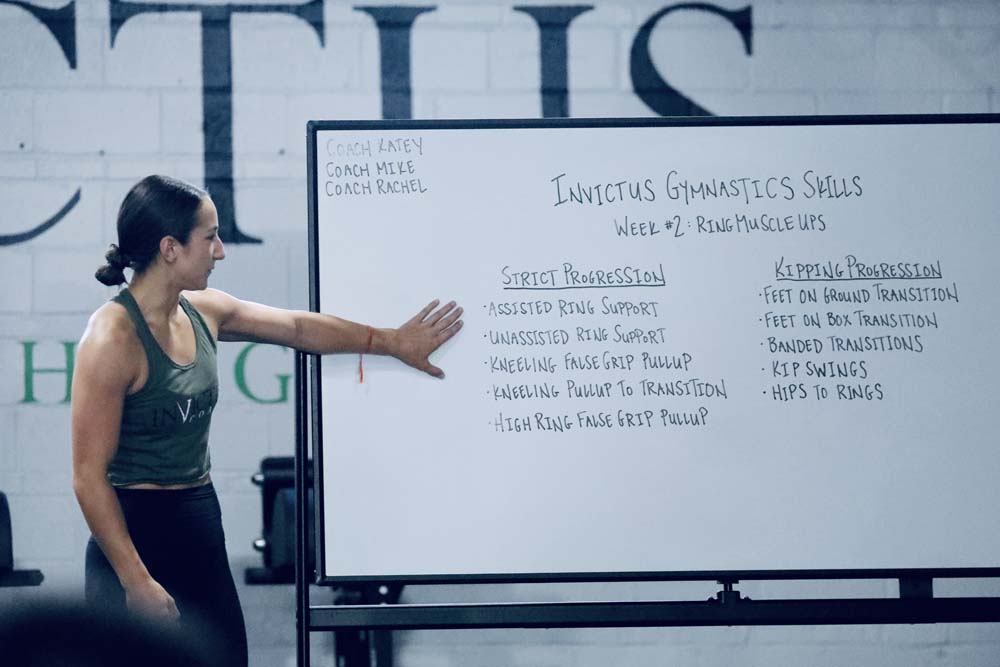 CTUS
H G
INVICTUS
COACH KATEY
COACH MIKE
COACH RACHEL
INVICTUS GYMNASTICS SKILLS
WEEK #2: RING MUSCLE UPS
STRICT PROGRESSION
·ASSISTED RING SUPPORT
·UNASSISTED RING SUPPORT
·KNEELING FALSE GRIP PULLUP
·KNEELING PULLUP TO TRANSITION
·HIGH RING FALSE GRIP PULLUP
KIPPING PROGRESSION
·FEET ON GROUND TRANSITION
·FEET ON BOX TRANSITION
·BANDED TRANSITIONS
·KIP SWINGS
·HIPS TO RINGS